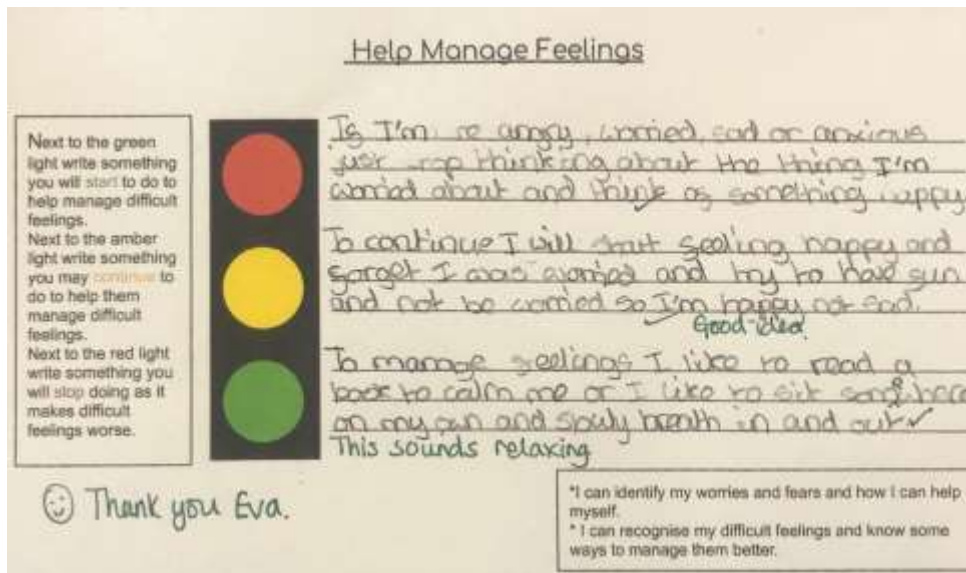 Help Manage Feelings
Next to the green
light write something
you will start to do to
help manage difficult
feelings.
Next to the amber
light write something
you may continue to
do to help them
manage difficult
feelings.
Next to the red light
write something you
will stop doing as it
makes difficult
feelings worse.
If I'm angry, worried, sad or anxious
just stop thinking about the thing I'm
worried about and think of something happy
To continue I will start feeling happy and
forget I was worried and try to have fun
and not be worried so I'm happy not sad.
Good idea
To manage feelings I like to read a
book to calm me or I like to sit somewhere
on my own and slouly breath in and out
This sounds relaxing
Thank you Eva.
*I can identify my worries and fears and how I can help
myself.
* I can recognise my difficult feelings and know some
ways to manage them better.